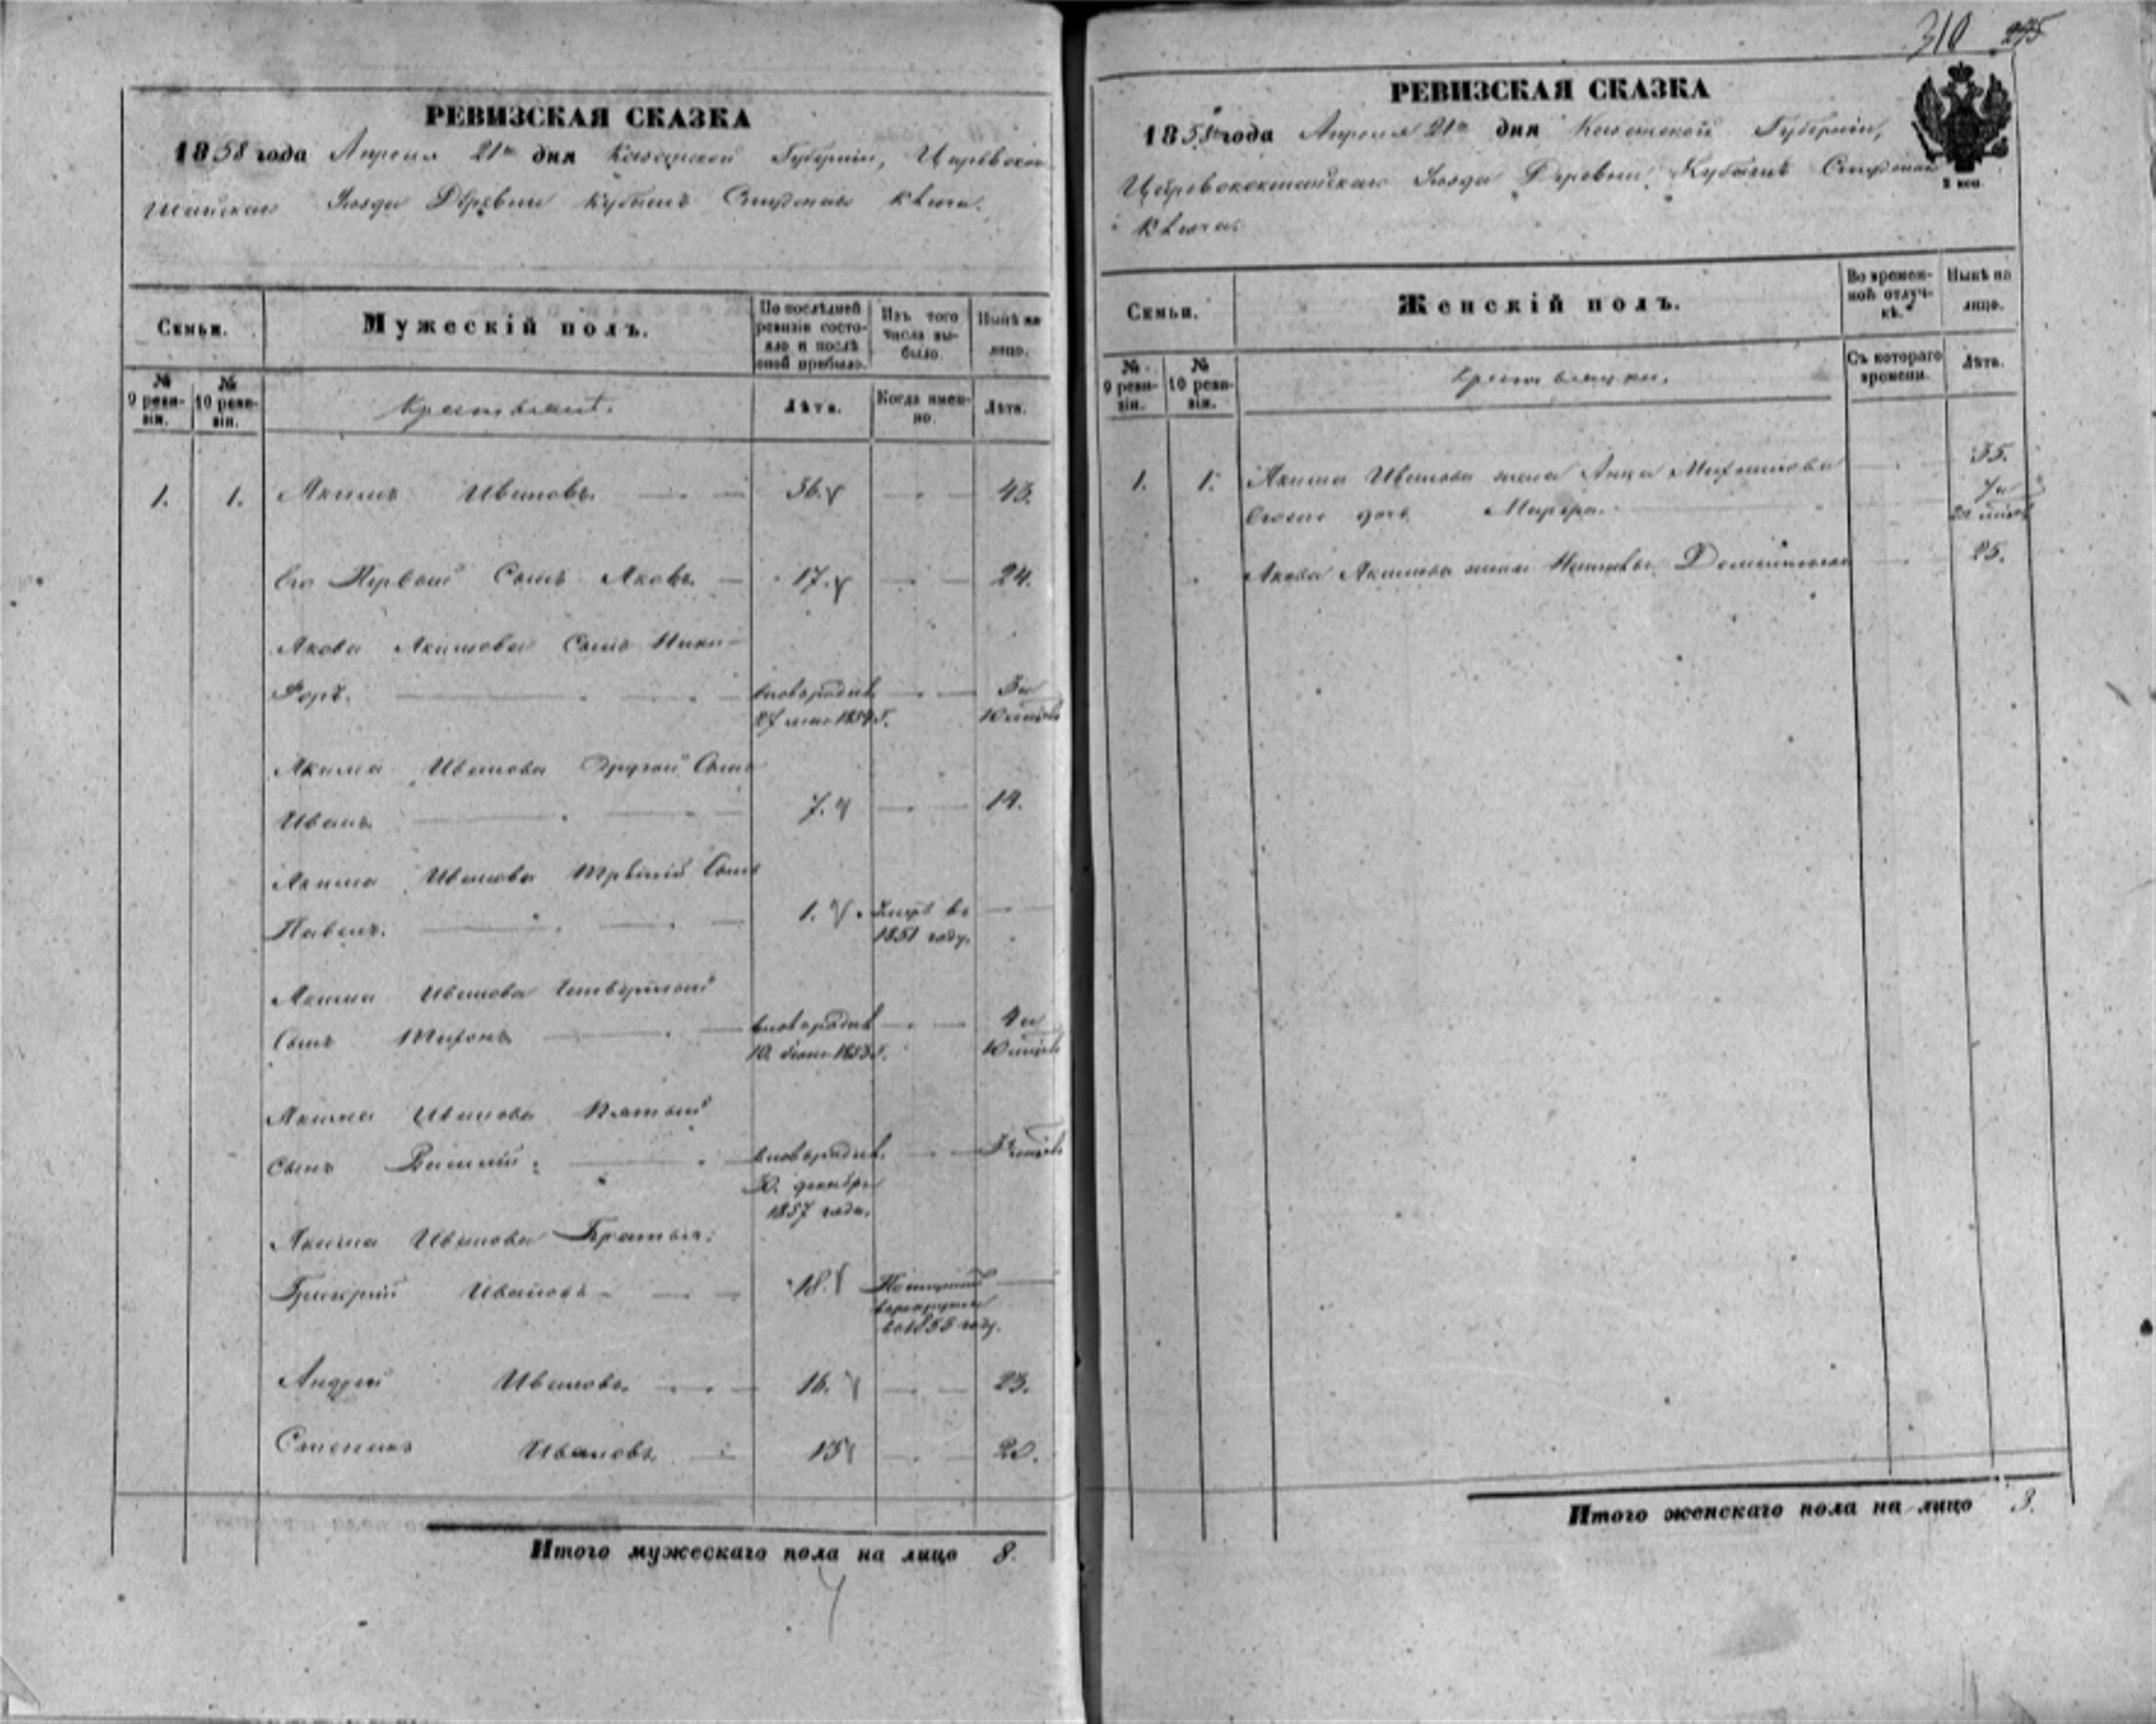 РЕВИЗСКАЯ СКАЗКА
1858 года Апреля 21го дня Казанской Губернии, Царевококо-
шайскаго Уезда Деревни
Семьи.
Мужескій полъ.
По послѣдней ревизіи состояло и послѣ оной прибыло.
Изъ того числа выбыло.
Нынѣ на лицо.
№ 9 ревизіи.
№ 10 ревизіи.
Крестьяне.
Лѣта.
Когда именно.
Лѣта.
1. 1. Акимъ Ивановъ. 36. 43.
Его Первый Сынъ Яковъ. 17. 24.
Якова Акимова Сынъ Ники-
форъ. вноворожден 3 и
27 1854 г. 10 месяцев
Акима Иванова Другой Сынъ
Иванъ 7. 14.
Акима Иванова Третій Сынъ
Павелъ. 1. Умре въ
1851 году.
Акима Иванова Четвертый
Сынъ Миронъ вноворожден 4 и
10. 1853 г. 10 месяцев
Акима Иванова Пятый
Сынъ Василій вноворожден.
30. декабря
1857 года.
Акима Иванова Братья:
Григорій Ивановъ 18. Поступил
в рекруты
в 1855 году.
Андрей Ивановъ. 16. 23.
Степанъ Ивановъ 13 20.
Итого мужескаго пола на лицо 8.
310 275
РЕВИЗСКАЯ СКАЗКА
1858 года Апреля 21го дня Казанской Губерніи,
Царевококшайскаго Уезда Деревни
Семьи.
Женскій полъ.
Во временной отлучкѣ.
Нынѣ на лицо.
№ 9 ревизіи.
№ 10 ревизіи.
Крестьянки.
Съ котораго времени.
Лѣта.
1. 1. Акима Иванова жена Анна 35.
дочь 7 и
Якова Акимова жена 25.
Итого женскаго пола на лицо 3.